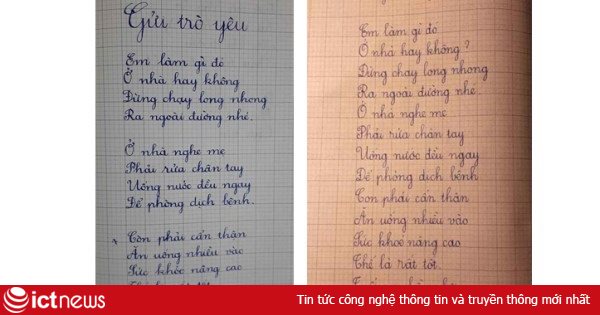 Gửi trò yêu
Em làm gì đó
Ở nhà hay không
Đừng chạy long nhong
Ra ngoài đường nhé.
Ở nhà nghe mẹ
Phải rửa chân tay
Uống nước đều ngay
Để phòng dịch bệnh.
x Còn phải cẩn thận
Ăn uống nhiều vào
Sức khỏe nâng cao
Em làm gì đó
Ở nhà hay không ?
Đừng chạy long nhong
Ra ngoài đường nhé.
Ở nhà nghe mẹ
Phải rửa chân tay
Uống nước đều ngay
Để phòng dịch bệnh
Con phải cẩn thận
Ăn uống nhiều vào
Sức khoẻ nâng cao
Thế là rất tốt.
ictnews
Tin tức công nghệ thông tin và truyền thông mới nhất